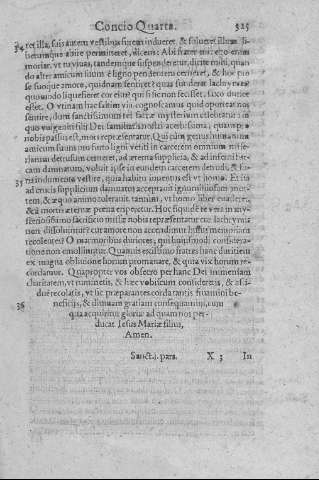 Concio Quarta. 325
34 ret illa, suis autem vestibus furem indueret & solueret illum, li-
berumque abire permitteret, dicens: Abi frater mi: ego enim
moriar, vt tu viuas, tandemque suspenderetur, dicite mihi, quan
do alter amicum suum è ligno pendentem cerneret, & hoc pro
se fuoque amore, quidnam sentiret? quas funderet lachrymas?
quomodo liquefieret cor eius? qui si secum fecisset, saxo durior
esset. O vtinam hac saltim via cognoscamus quid oporteat nos
sentire, dum sanctissimum istud factæ mysterium celebratur: in
quo vnigeniti filij Dei
nobis passus est, mors repræsentatur. Qui cùm genus humanum
amicum suum pro furto ligni vetiti in carcerem omnium mise-
riarum detrusum cerneret, ad æterna supplicia, & ad inferni bar-
cam damnatum, voluit ipse in eundem carcerem detrudi, & hu-
35 mana indumenta vestire, quia habitu inuentus est vt homo. Et sic
ad crucis supplicium damnatus acceptauit ignominiosam mor-
tem, & æquo animo tolerauit, tantum, vt homo liber euaderet,
& à mortis æternæ pœna eriperetur. Hoc siquidem vera in my-
steriosissimo sacrificio missæ nobis repræsentatur: cur lachrymis
non dissoluimur? cur amore non accendimur huius memoriam
recolentes? O marmoribus duriores, qui huiusmodi considera-
tione non emolliuntur. Quamuis certissimo fratres hanc duritiem
ex magna obliuione horum promanare, & quia vix horum re-
cordamur. Quapropter vos obsecro per hanc Dei immensam
charitatem, vt ruminetis, & hæc vobiscum consideretis, & assi-
duè recolatis, vt sic præparantes corda tantis fruamini be-
36 neficijs, & diuinam gratiam consequamini, cum
qua acquiritur gloria: ad quam nos per-
ducat Iesus Mariæ filius,
Amen.
Sanct. 1. pars. X 3 In